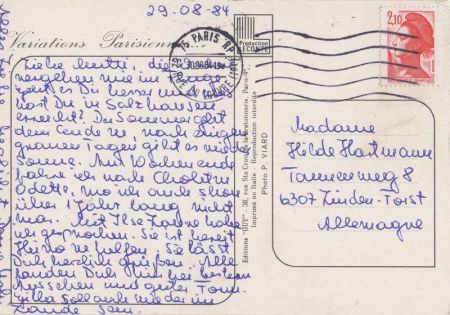 29.08.84
Variations Parisiennes
Liebe Mutti, die
vergehen wie im Fluge
geht es Dir besser
hast Du in Salzhausen
erreicht? Der Sommer geht
dem Ende zu, nach einigen
grauen Tagen gibt es wieder
Sonne. Am Wochenende
fahre ich nach Cholet zu
Odette, wo ich auch schon
über 1 Jahr lang nicht
war. Mit Ilse Hanne habe
ich gesprochen. Sie ist bereit
Heino zu helfen. Sie lässt
Dich herzlich grüßen. Alle
fanden Dich
Aussehen und guter Form.
soll auch wieder im
Lande sein.
PARIS RP
30.08.84
R. DU LOUVRE (1er)
PRODUCTION
LECONTE
Editions "GUY" - 38, rue Ste Croix de la Bretonnerie, Paris-4e.
Imprimé en Italie - Reproduction interdite
Photo P. VIARD
2,10
Madame
Hilde Hartmann
Tannenweg 8
6307 Linden-Forst
Allemagne